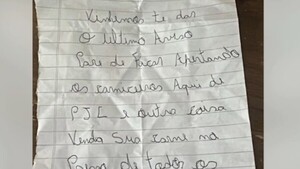 Vindemos te das
O Ultimo Aviso
Pare de Ficar Apertando
os carniceiros Aqui de
PJL e outra coisa
Venda Sua Carne na
de todos os